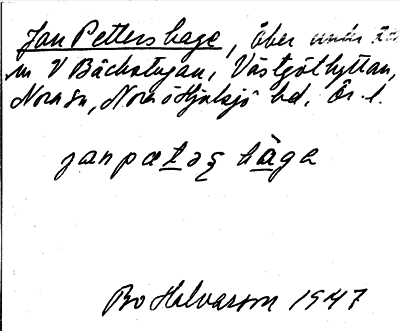 Jan Petters hage, åker under
m V Bäckstugan, Västgöthyttan,
Nora sn, Nora o Hjulsjö hd, Ör. l.
janpætəʂ hàga
Bo Halvarson 1947